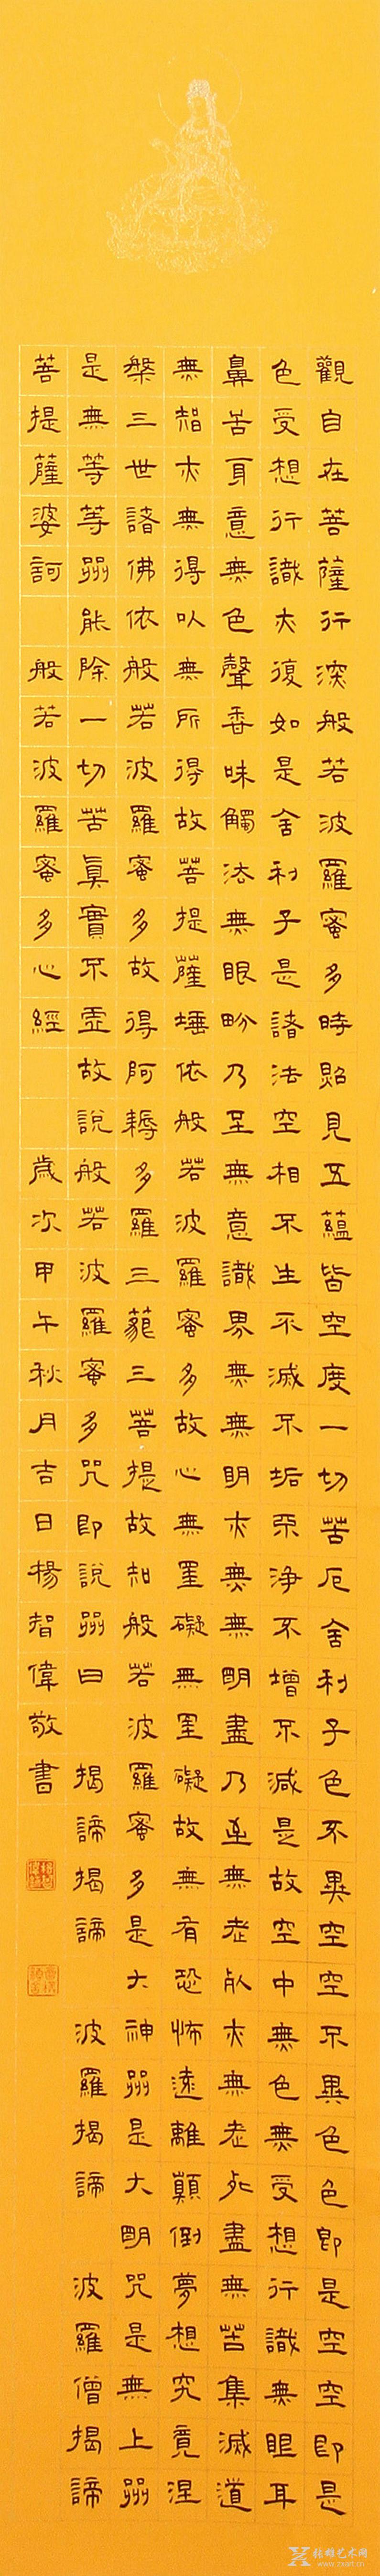 觀自在菩薩行深般若波羅蜜多時照見五蘊皆空度一切苦厄舍利子色不異空空不異色色即是空空即是
色受想行識亦復如是舍利子是諸法空相不生不滅不垢不淨不增不減是故空中無色無受想行識無眼耳
鼻舌身意無色聲香味觸法無眼界乃至無意識界無無明亦無無明盡乃至無老死亦無老死盡無苦集滅道
無智亦無得以無所得故菩提薩埵依般若波羅蜜多故心無罣礙無罣礙故無有恐怖遠離顛倒夢想究竟涅
槃三世諸佛依般若波羅蜜多故得阿耨多羅三藐三菩提故知般若波羅蜜多是大神咒是大明咒是無上咒
是無等等咒能除一切苦真實不虛故說般若波羅蜜多咒即說咒曰 揭諦揭諦 波羅揭諦 波羅僧揭諦
菩提薩婆訶 般若波羅蜜多心經 歲次甲午秋月吉日楊智偉敬書
张雄艺术网
www.zxart.cn